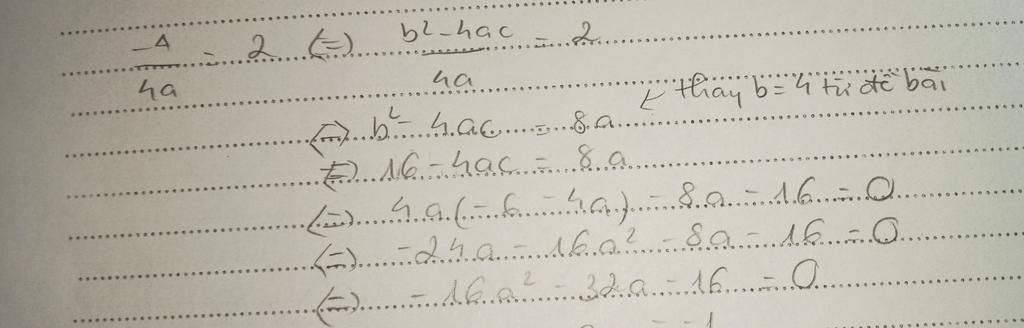 -Δ/4a = 2 (=) b² - 4ac/4a = 2
↙ thay b = 4 từ đề bài
(=) b² - 4ac = 8a
(=) 16 - 4ac = 8a
(=) 4a(-6 - 4a) - 8a - 16 = 0
(=) -24a - 16a² - 8a - 16 = 0
(=) -16a² - 32a - 16 = 0
= -1